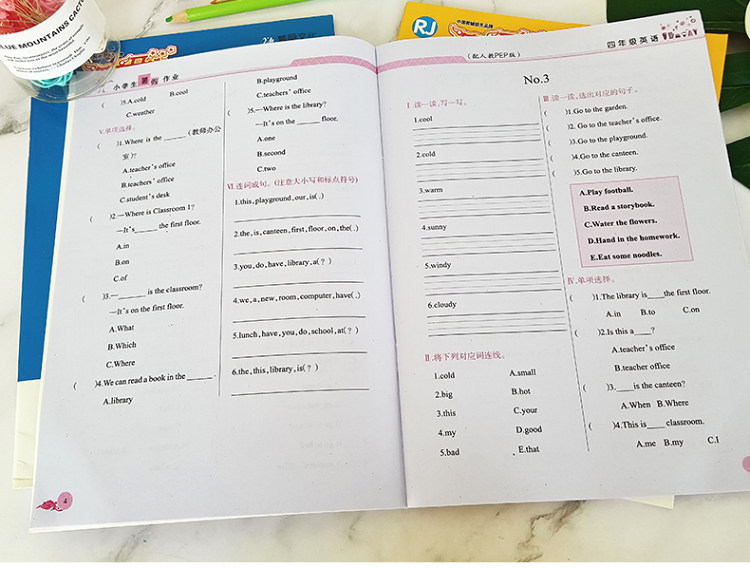 BLUE MOUNTAINS CACTUS
RJ
小学生 暑假 作业
( )5.A.cold B.cool
C.weather
V.单项选择。
( )1.Where is the ______ (教师办公
室)?
A.teacher's office
B.teachers' office
C.student's desk
( )2.—Where is Classroom 1?
—It's______ the first floor.
A.in
B.on
C.of
( )3.—______ is the classroom?
—It's on the first floor.
A.What
B.Which
C.Where
( )4.We can read a book in the ______.
A.library
B.playground
C.teachers' office
( )5.—Where is the library?
—It's on the ______ floor.
A.one
B.second
C.two
VI.连词成句。(注意大小写和标点符号)
1.this,playground,our,is(.)
2.the,is,canteen,first,floor,on,the(.)
3.you,do,have,library,a(?)
4.we,a,new,room,computer,have(.)
5.lunch,have,you,do,school,at(?)
6.the,this,library,is(?)
4
(配人教PEP版)
四年级英语
No.3
I.读一读,写一写。
1.cool
2.cold
3.warm
4.sunny
5.windy
6.cloudy
II.将下列对应词连线。
1.cold A.small
2.big B.hot
3.this C.your
4.my D.good
5.bad E.that
III.读一读,选出对应的句子。
( )1.Go to the garden.
( )2.Go to the teacher's office.
( )3.Go to the playground.
( )4.Go to the canteen.
( )5.Go to the library.
A.Play football.
B.Read a storybook.
C.Water the flowers.
D.Hand in the homework.
E.Eat some noodles.
IV.单项选择。
( )1.The library is____the first floor.
A.in B.to C.on
( )2.Is this a____?
A.teacher's office
B.teacher office
( )3.____is the canteen?
A.When B.Where
( )4.This is____classroom.
A.me B.my C.I